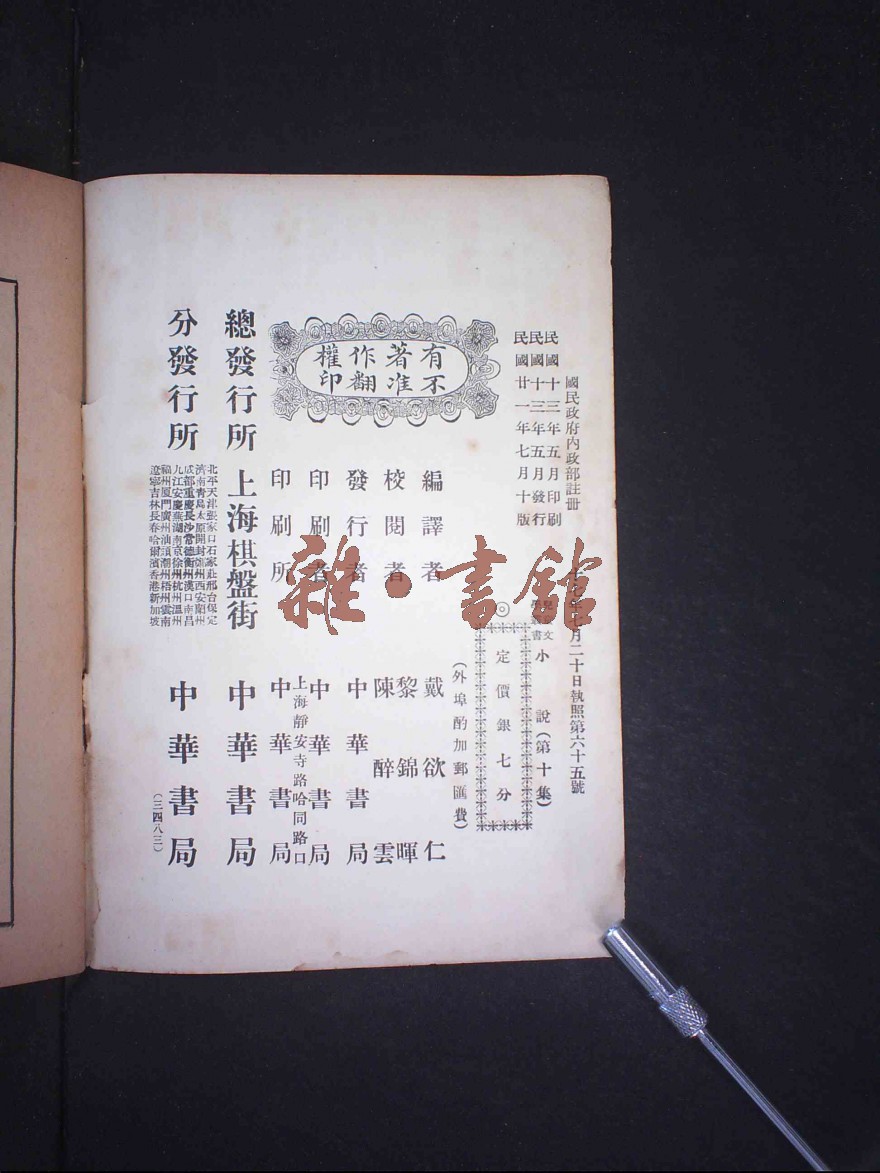 國民政府內政部註冊
七年七月二十日執照第六十五號
民國十三年五月印刷
民國十三年五月發行
民國廿一年七月十版
文
學
書
小說(第十集)
◎
定價銀七分
(外埠酌加郵匯費)
有著作權
不准翻印
編譯者 戴欲仁
校閱者 黎錦暉
陳醉雲
發行者 中華書局
印刷者 中華書局
上海靜安寺路哈同路口
印刷所 中華書局
總發行所 上海棋盤街 中華書局
分發行所 中華書局
北平天津張家口石家莊邢台保定
濟南青島太原開封鄭州西安蘭州
成都重慶長沙常德衡州漢口南昌
九江安慶蕪湖南京徐州杭州溫州
福州廈門廣州汕頭潮州梧州雲南
遼寧吉林長春哈爾濱香港新加坡
(三四八三)
雜·書館